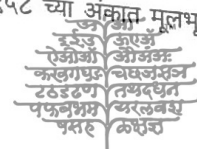 च्या अंकात
अ आ
इईउ ऊएऍ
ऐओऔ
कखगघङ चछजझञ
टठडढण तथदधन
पफबभम यरलवश
षसह ळक्षज्ञ